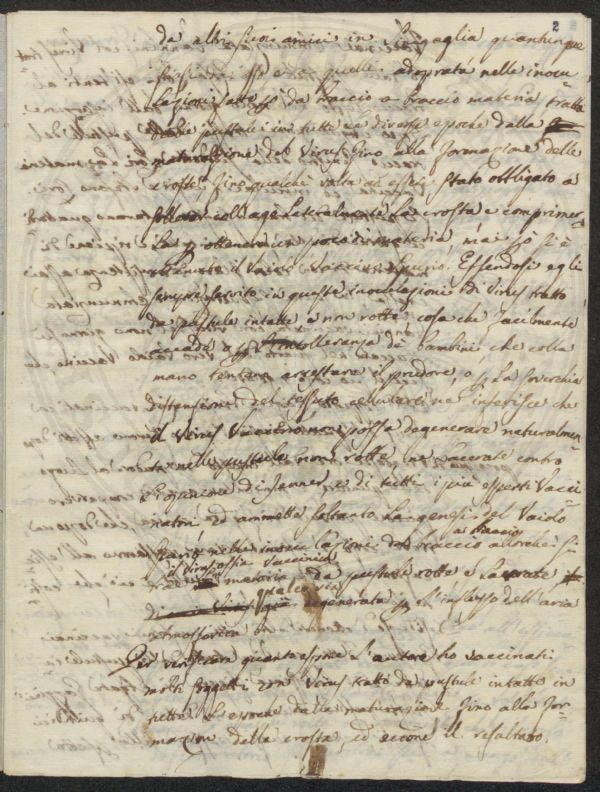 2
da altri suoi amici in Senigaglia quantunque
da quelli adoprata nelle inocu-
lazioni fatte da braccio a braccio materia tratta
dalle pustule in tutte le diverse epoche dalla
maturazione del Virus fino alla formazione delle
croste, fino qualche volta ad essere stato obbligato a
sollevar lateralmente la crosta e comprimer-
la p ottenere un poco di materia, mai
il Vaiolo Vaccino spurio. Essendosi egli
sempre servito in queste inoculazioni di Virus tratto
da pustule intatte e non rotte, cosa che facilmente
accade p l'intolleranza de bambini che colla
mano tentano arrestare il prudore, o p la soverchia
distensione del tessuto cellulare ne inferisce che
il Virus Vaccino non possa degenerare naturalmen-
te nelle pustule non rotte ne lacerate contro
l'opinione di Jenner, e di tutti i più esperti Vacci-
natori ed ammetta soltanto la genesi del Vaiolo
spurio nelle inoculazioni dal braccio a braccio allorche si
Vaccinico
materia da pustule rotte e lacerate
degenerata p l'influsso dell'aria
atmosferica
Per verificare quanto espone l'autore ho vaccinati
molti soggetti con Virus tratto da pustule intatte in
tutte l'epoche dalla maturazione fino alla for-
mazion della crosta, ed eccone il resultato.